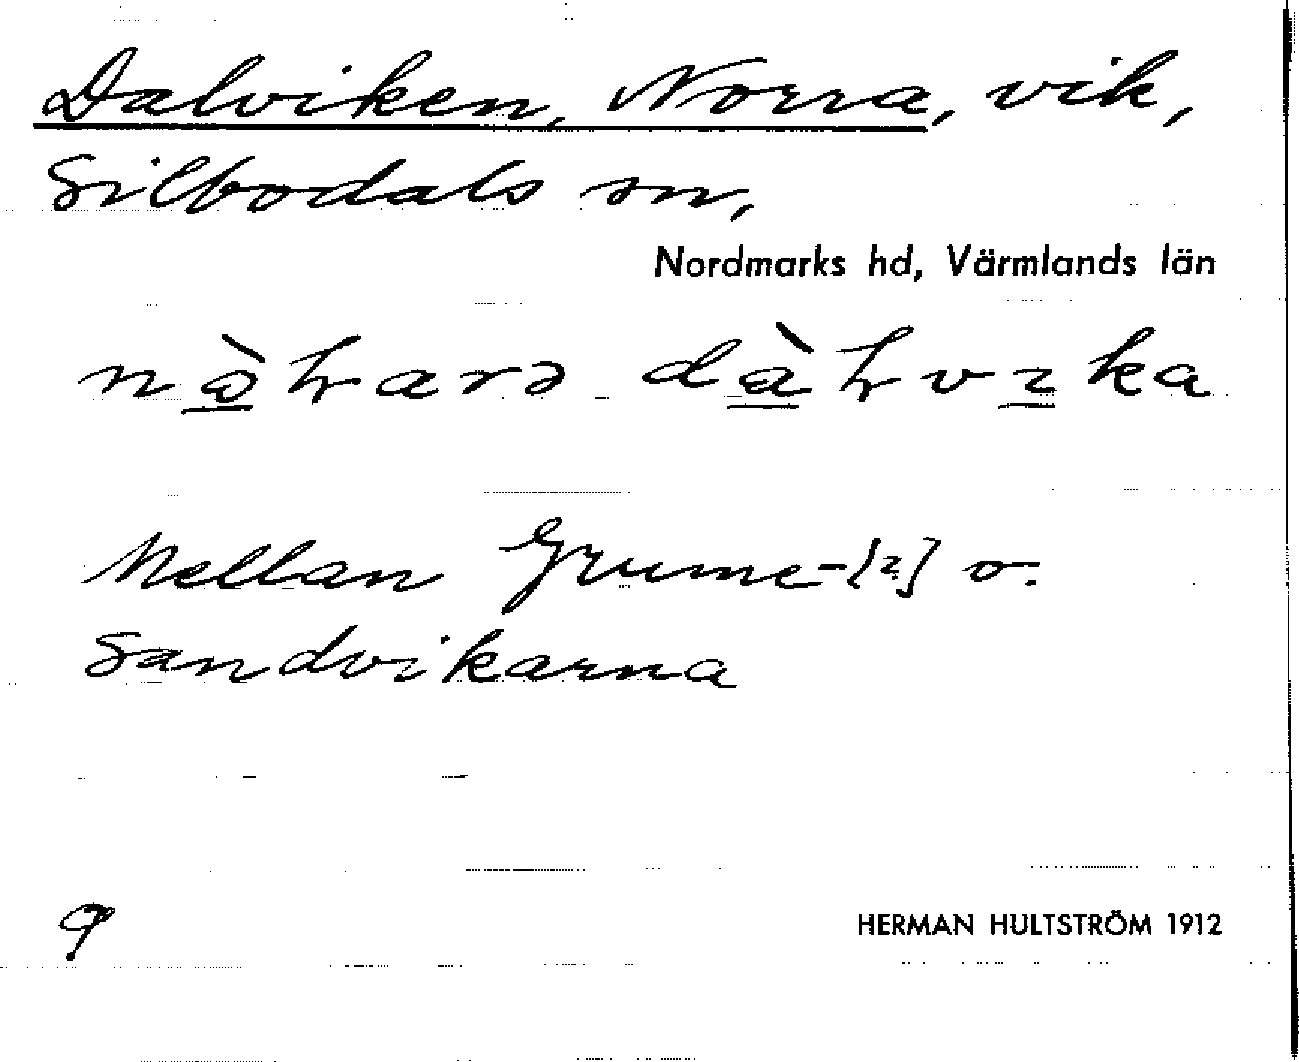 Dalviken, Norra, vik,
Silbodals sn,
Nordmarks hd, Värmlands län
Mellan Grume-[?] o.
Sandvikarna
9
HERMAN HULTSTRÖM 1912